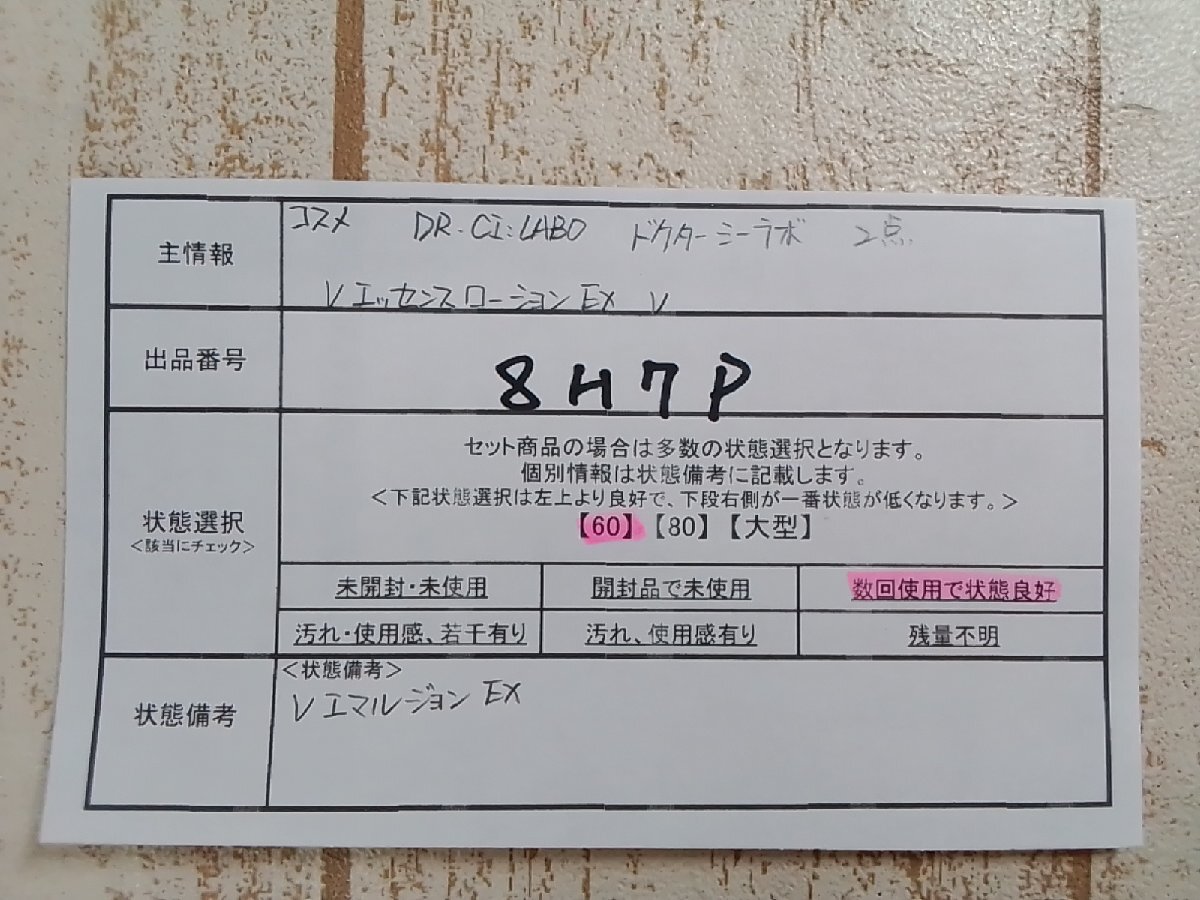 主情報
コスメ DR.CI:LABO ドクターシーラボ 2点
V エッセンスローション EX V
出品番号
8H7P
状態選択
<該当にチェック>
セット商品の場合は多数の状態選択となります。
個別情報は状態備考に記載します。
<下記状態選択は左上より良好で、下段右側が一番状態が低くなります。>
【60】【80】【大型】
未開封・未使用 開封品で未使用 数回使用で状態良好
汚れ・使用感、若干有り 汚れ、使用感有り 残量不明
状態備考
<状態備考>
V エマルジョン EX